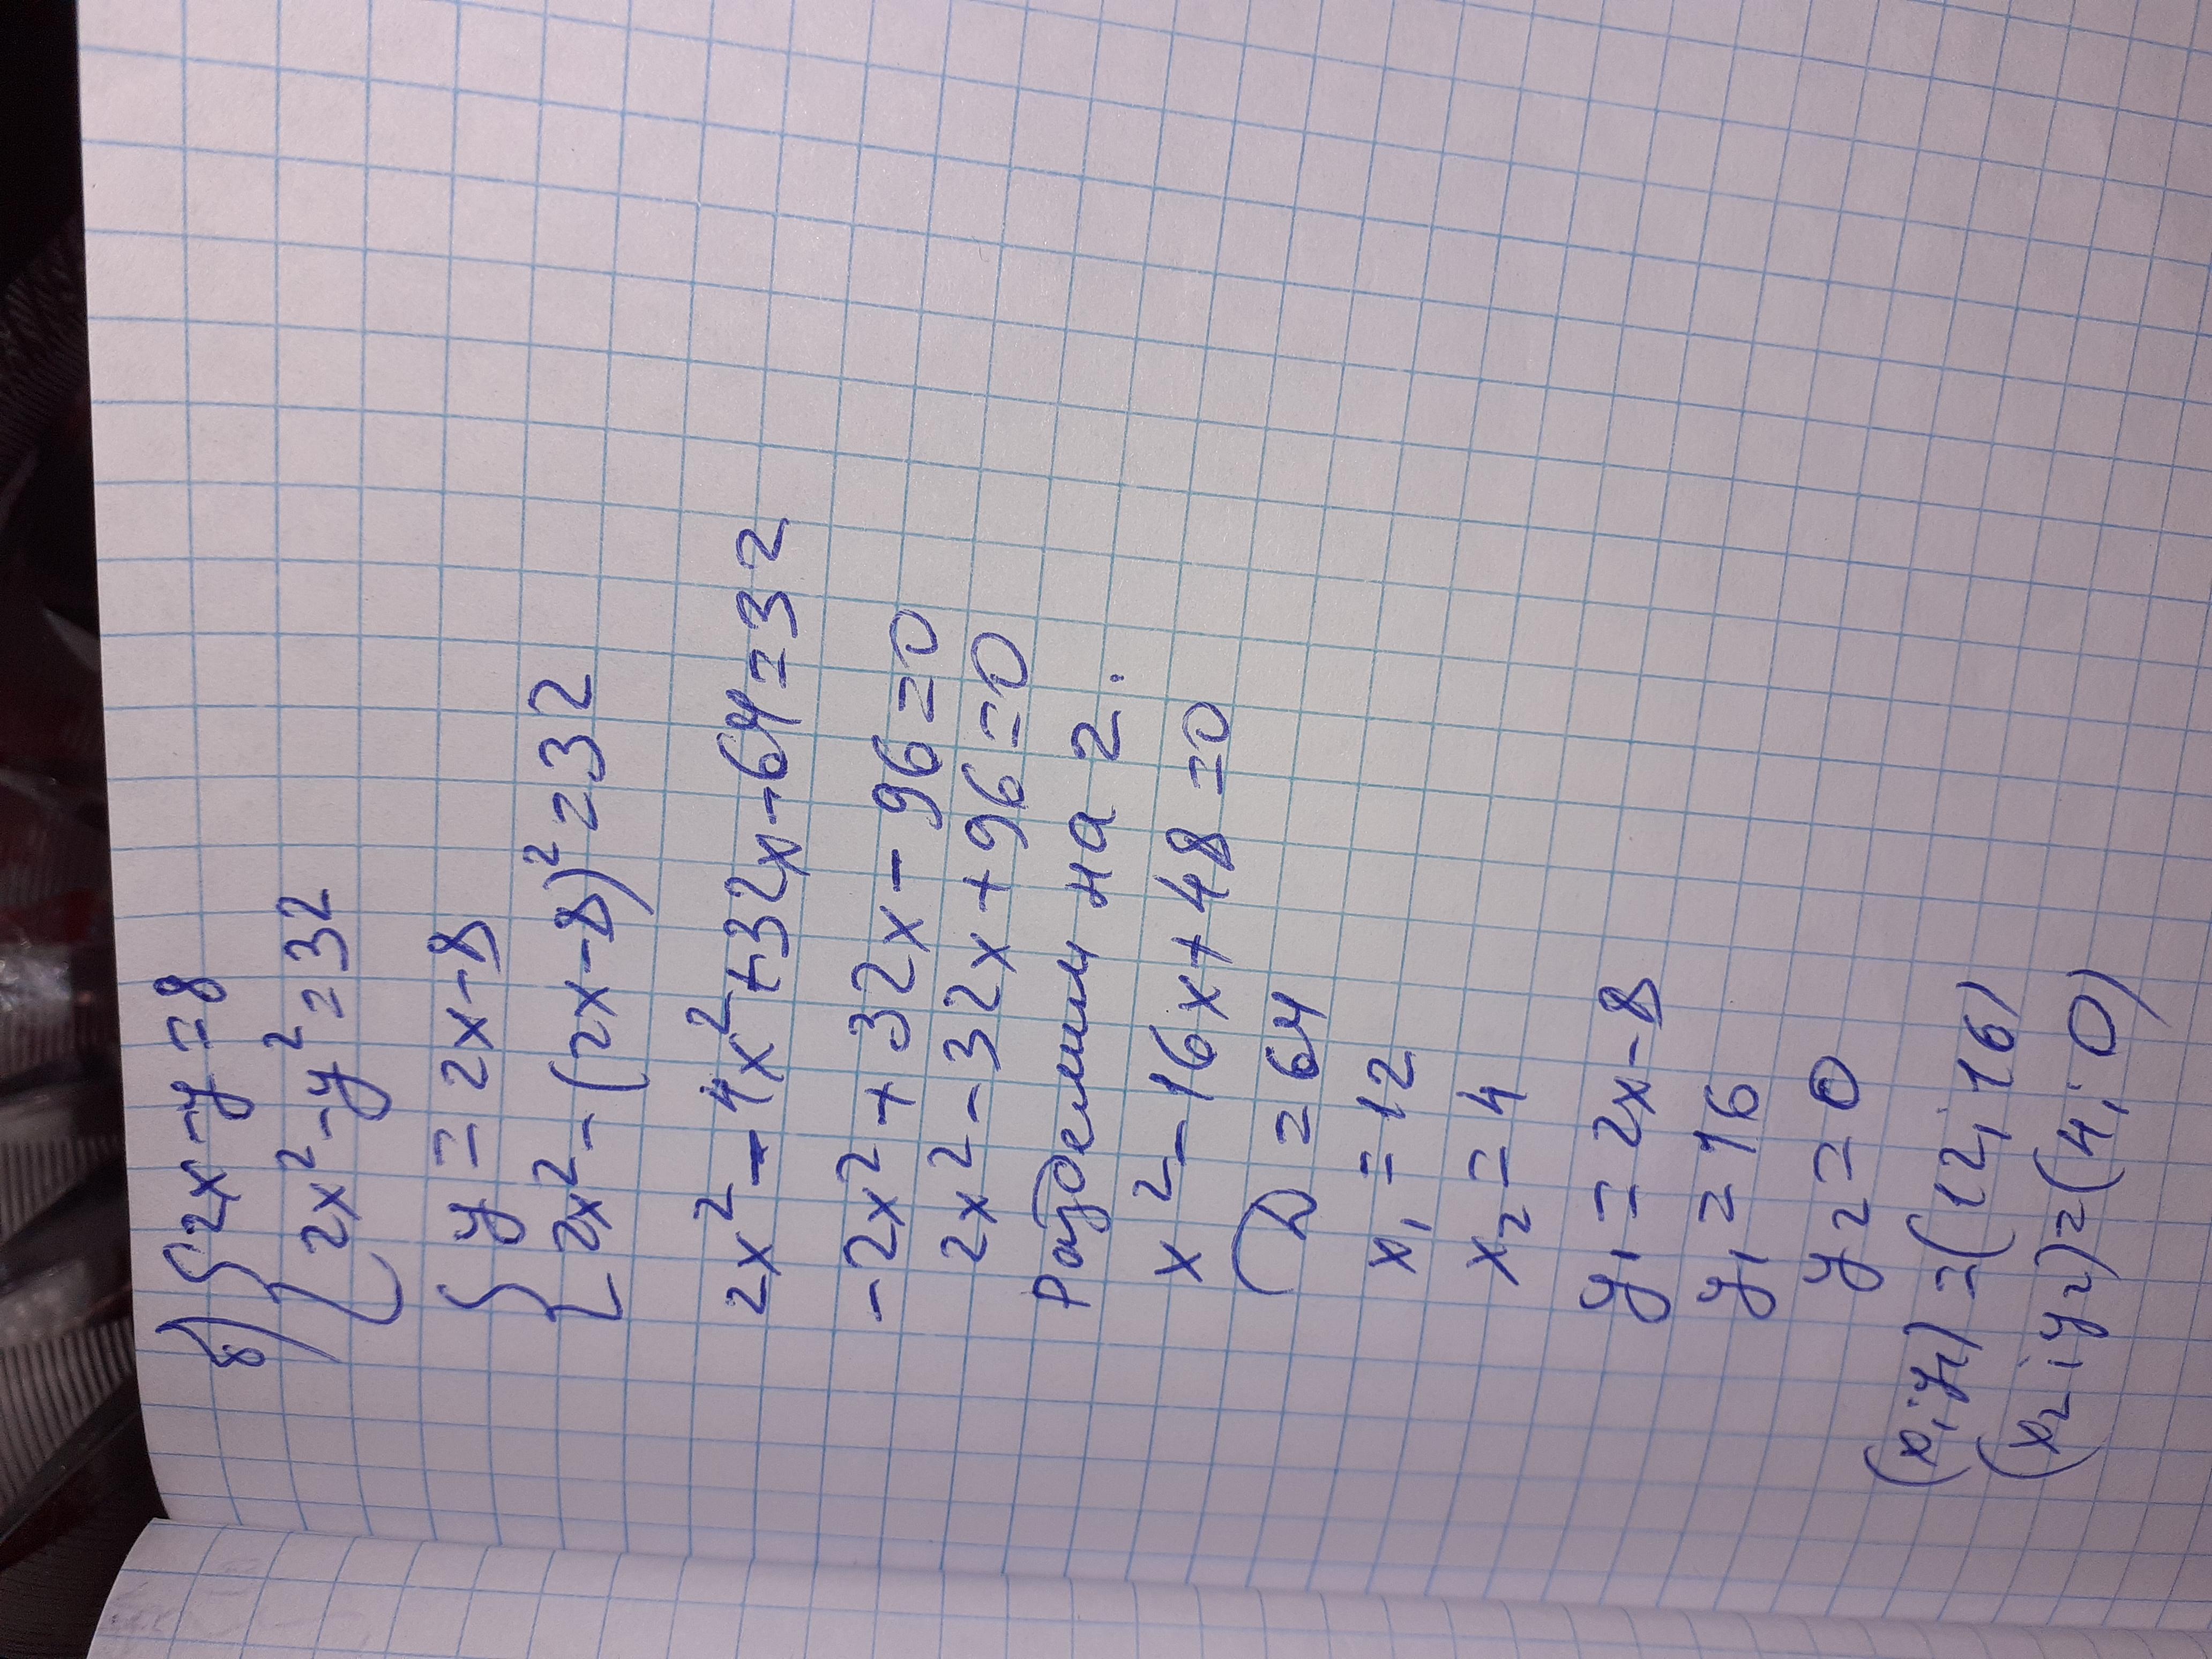 б) { 2x-y=8
2x²-y²=32
{ y=2x-8
2x²-(2x-8)²=32
2x²-4x²+32x-64=32
-2x²+32x-96=0
2x²-32x+96=0
Разделим на 2.
x²-16x+48=0
D=64
x₁=12
x₂=4
y₁=2x-8
y₁=16
y₂=0
(x₁;y₁)=(12;16)
(x₂;y₂)=(4;0)